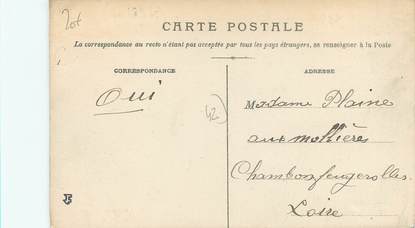 CARTE POSTALE
La correspondance au recto n'étant pas acceptée par tous les pays étrangers, se renseigner à la Poste
CORRESPONDANCE
ADRESSE
Oui
42)
Madame Plaine
aux mollières
Chambon feugerolles
Loire